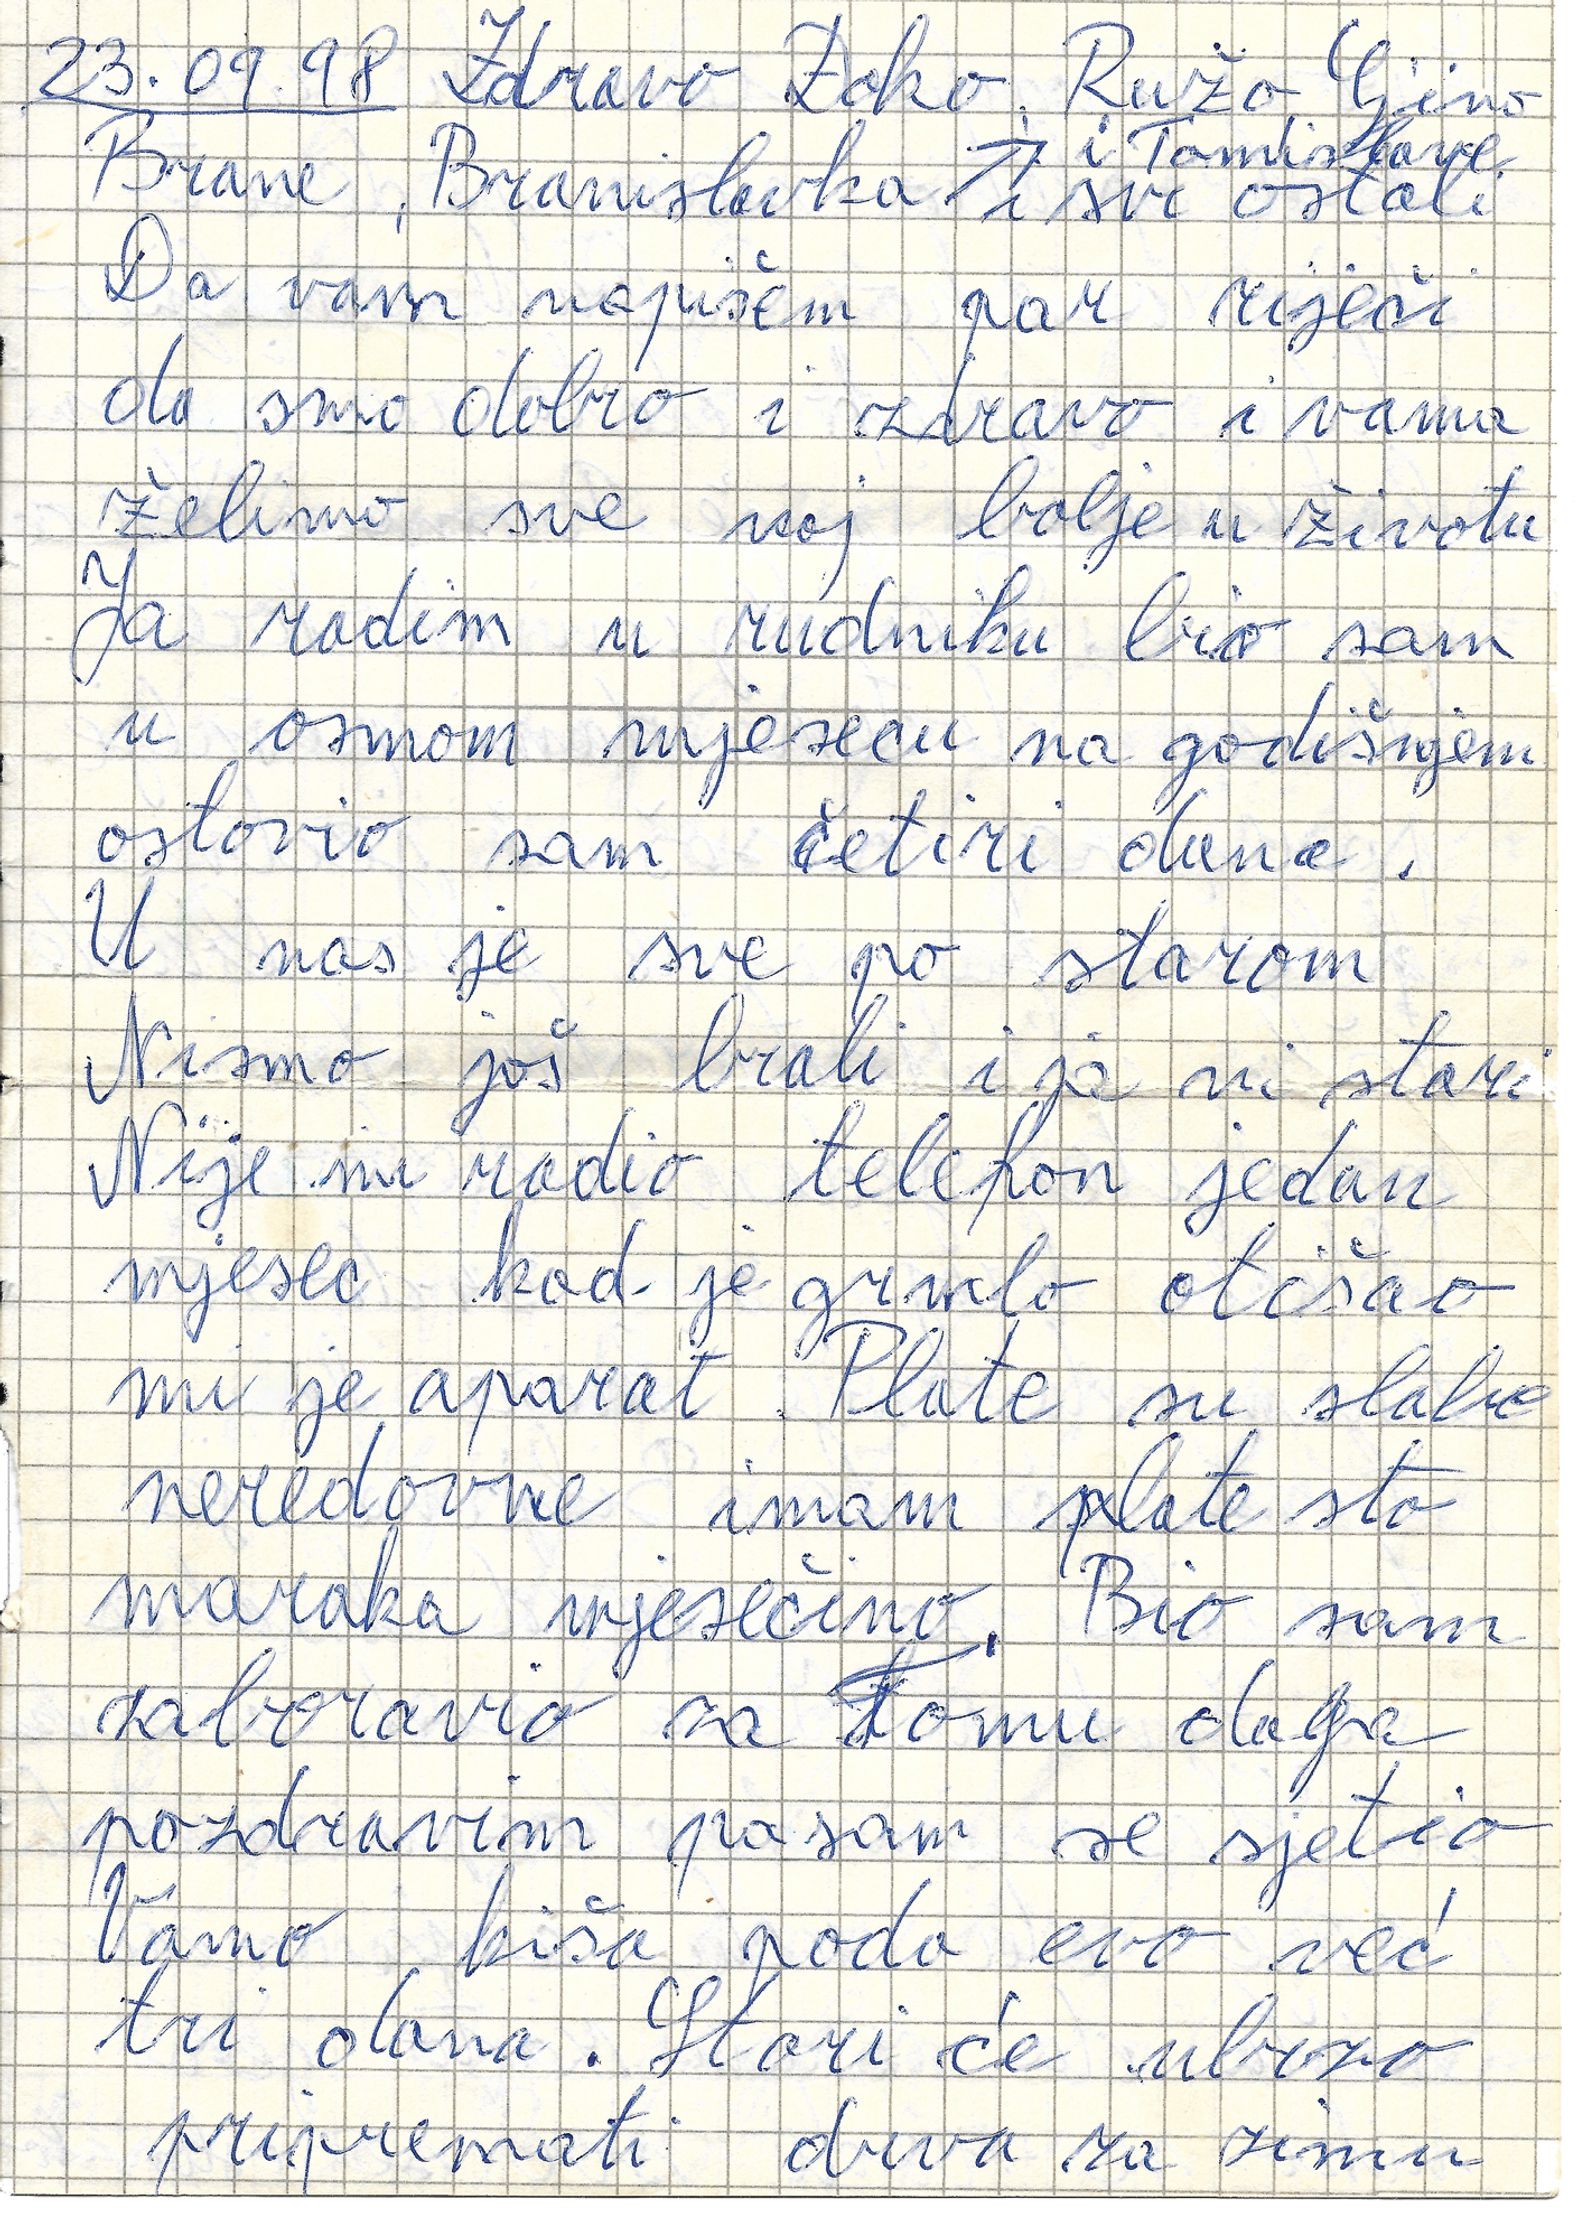 23.09.98 Zdravo Zoko, Ružo Gino
i Tomislave
Brane, Branislavka i svi ostali
Da vam napišem par riječi
da smo dobro i zdravo i vama
želimo sve naj bolje u životu
Ja radim u rudniku bio sam
u osmom mjesecu na godišnjem
ostavio sam četiri dana.
U nas je sve po starom
Nismo još brali i ja ni stari
Nije mi radio telefon jedan
mjesec kad je grmlo otišao
mi je aparat. Plate su slabe
neredovne imam plate sto
maraka mjesečino. Bio sam
zaboravio za Tomu da ga
pozdravim pa sam se sjetio
Vamo kiša pada evo već
tri dana. Stari će ubrzo
pripremati drva za zimu